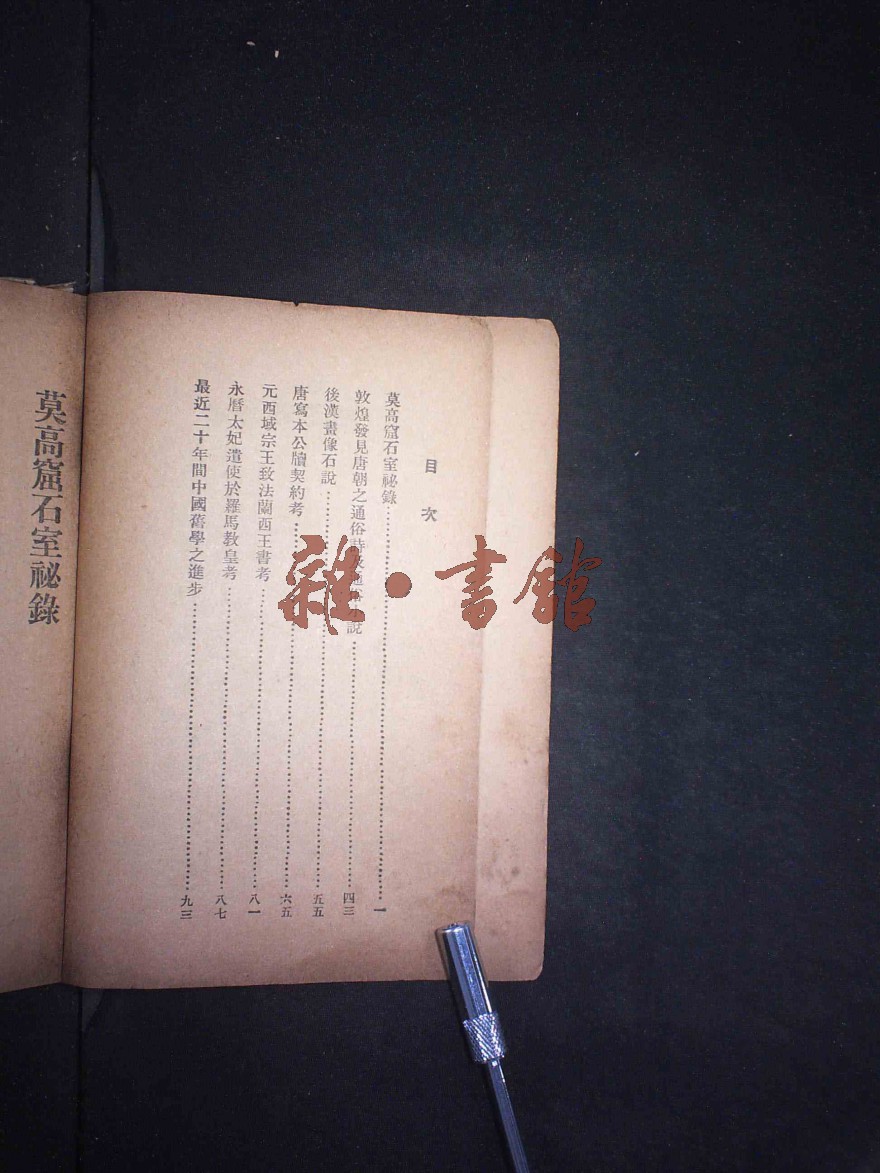 目次
莫高窟石室祕錄 一
敦煌發見唐朝之通俗詩及通俗小說 四三
後漢畫像石說 五五
唐寫本公牘契約考 六五
元西域宗王致法蘭西王書考 八一
永曆太妃遣使於羅馬教皇考 八七
最近二十年間中國舊學之進步 九三
莫高窟石室祕錄
雜·書館